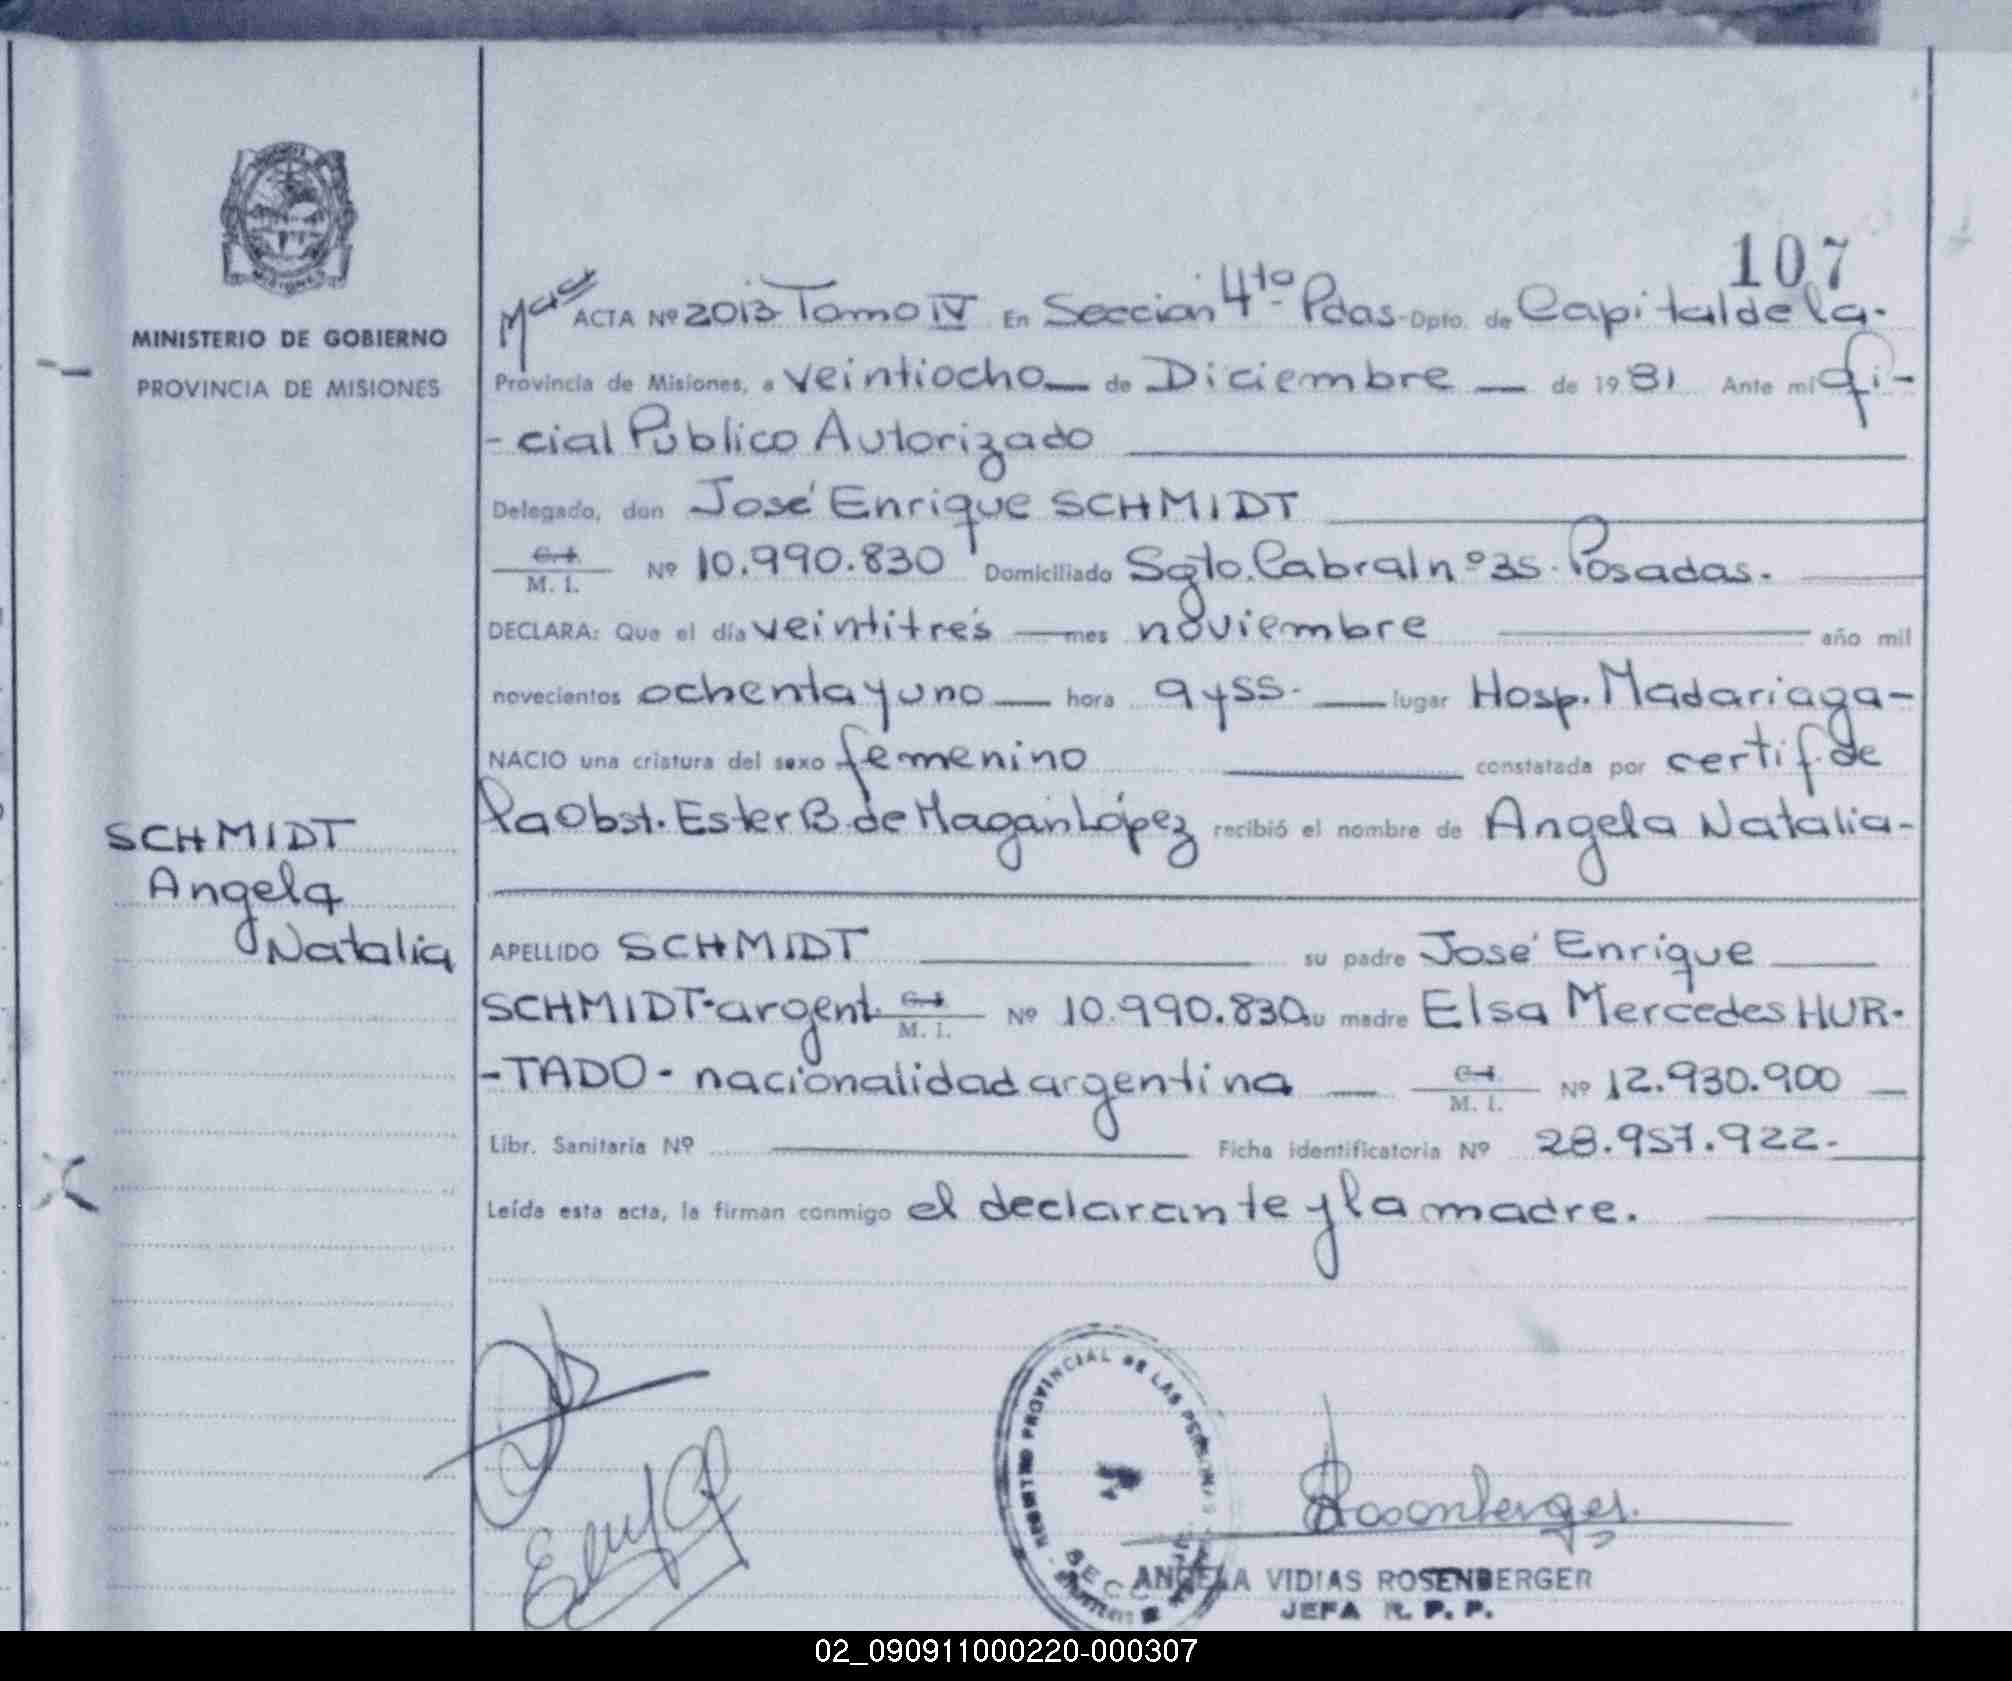 107
MINISTERIO DE GOBIERNO
PROVINCIA DE MISIONES
ACTA Nº 2013 Tomo IV En Sección 4to Pdas Dpto. de Capital de la-
Provincia de Misiones, a veintiocho de Diciembre de 1981 Ante mi Ofi-
-cial Público Autorizado
Delegado, don José Enrique SCHMIDT
C. I.
M. I. Nº 10.990.830 Domiciliado Sgto. Cabral nº 35. Posadas.
DECLARA: Que el día veintitrés mes noviembre año mil
novecientos ochenta y uno hora 9 y 55. lugar Hosp. Madariaga-
NACIO una criatura del sexo femenino constatada por certif. de
la Obst. Ester B. de Magan López recibió el nombre de Angela Natalia-
SCHMIDT
Angela
Natalia
APELLIDO SCHMIDT su padre José Enrique
SCHMIDT-argent. C. I. M. I. Nº 10.990.830 su madre Elsa Mercedes HUR-
-TADO- nacionalidad argentina C. I. M. I. Nº 12.930.900
Libr. Sanitaria Nº Ficha identificatoria Nº 28.957.922.
Leída esta acta, la firman conmigo el declarante y la madre.
PROVINCIAL DE LAS PERSONAS
SECC
Rosenberger
ANGELA VIDIAS ROSENBERGER
JEFA R. P. P.
02_090911000220-000307